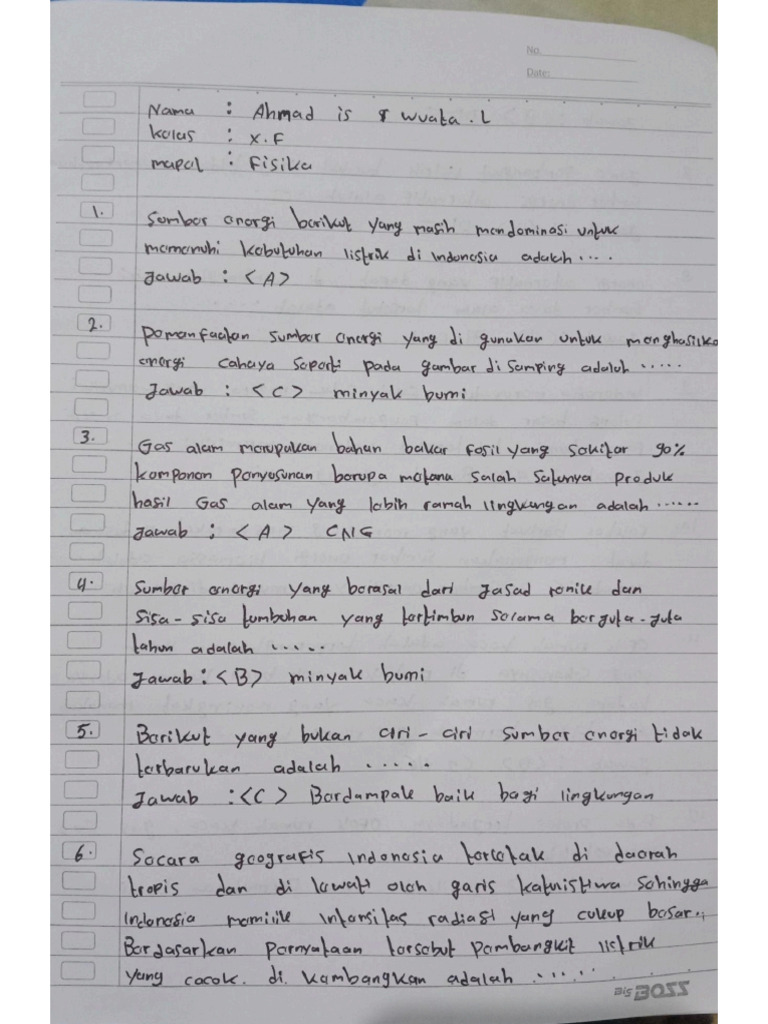 No.
Date:
Nama : Ahmad is & wuata . L
kelas : X.F
mapel : Fisika
1. Sumber energi berikut yang masih mendominasi untuk
memenuhi kebutuhan listrik di Indonesia adalah ....
Jawab : <A>
2. Pemanfaatan sumber energi yang di gunakan untuk menghasilka
energi cahaya seperti pada gambar di samping adalah .....
Jawab : <C> minyak bumi
3. Gas alam merupakan bahan bakar fosil yang sekitar 90%
komponen penyusunan berupa metana salah satunya produk
hasil Gas alam yang lebih ramah lingkungan adalah ......
Jawab : <A> CNG
4. Sumber energi yang berasal dari jasad renik dan
sisa-sisa tumbuhan yang tertimbun selama berjuta-juta
tahun adalah .....
Jawab : <B> minyak bumi
5. Berikut yang bukan ciri-ciri sumber energi tidak
terbarukan adalah .....
Jawab : <C> Berdampak baik bagi lingkungan
6. Secara geografis Indonesia terletak di daerah
tropis dan di lewati oleh garis katulistiwa Sehingga
Indonesia memilik Intensitas radiasi yang cukup besar..
Berdasarkan pernyataan tersebut pembangkit listrik
yang cocok. di. kembangkan adalah ......
Big BOSS